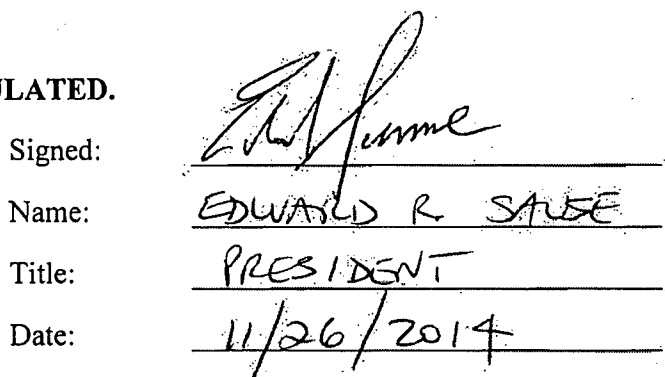 ULATED.
Signed:
Name: EDWARD R. SAUSE
Title: PRESIDENT
Date: 11/26/2014